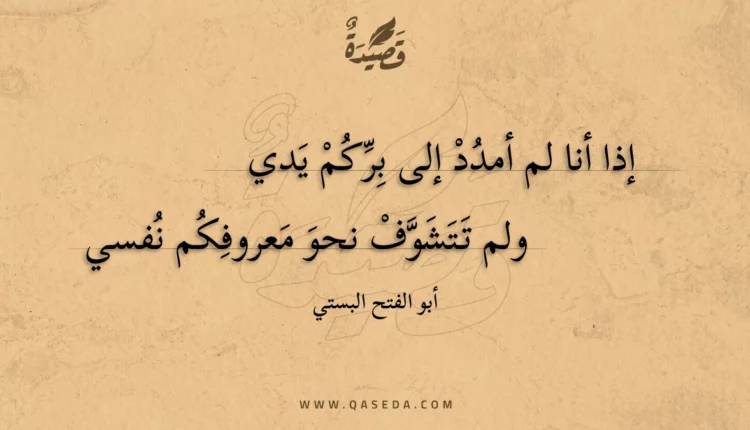 قَصِيدَةٌ
إذا أنا لم أمدُدْ إلى بِرِّكُمْ يَدي
ولم تَتَشَوَّفْ نحوَ مَعروفِكُم نُفسي
أبو الفتح البستي
WWW.QASEDA.COM